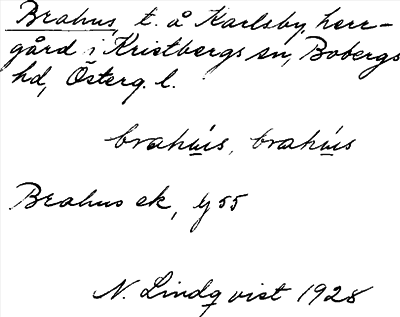 Brahus, t. å Karlsby, herr-
gård i Kristbergs sn, Bobergs
hd, Österg. l.
brahús, brahús
Brahus ek, y 55
N. Lindqvist 1928